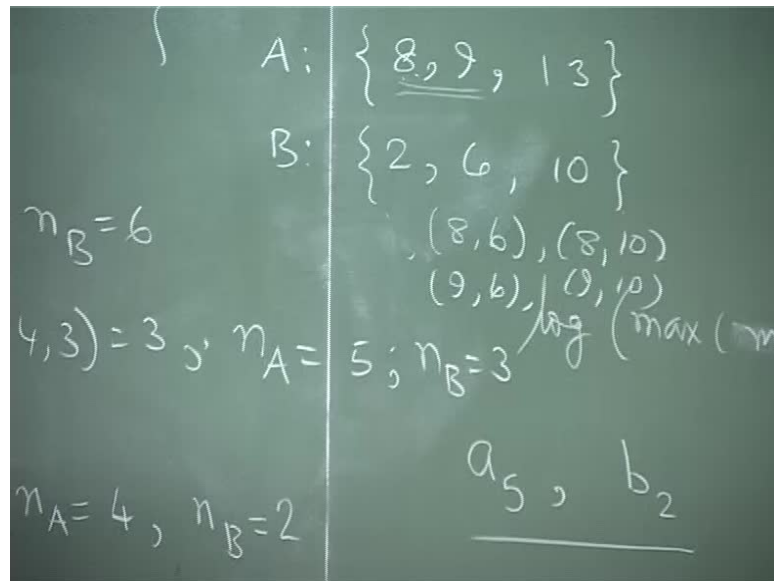 A: {8, 9, 13}
B: {2, 6, 10}
n_B = 6
, (8, 6), (8, 10)
(9, 6), (9, 10)
4, 3) = 3 ; n_A = 5 ; n_B = 3
log (max (m
a_5 , b_2
n_A = 4 , n_B = 2